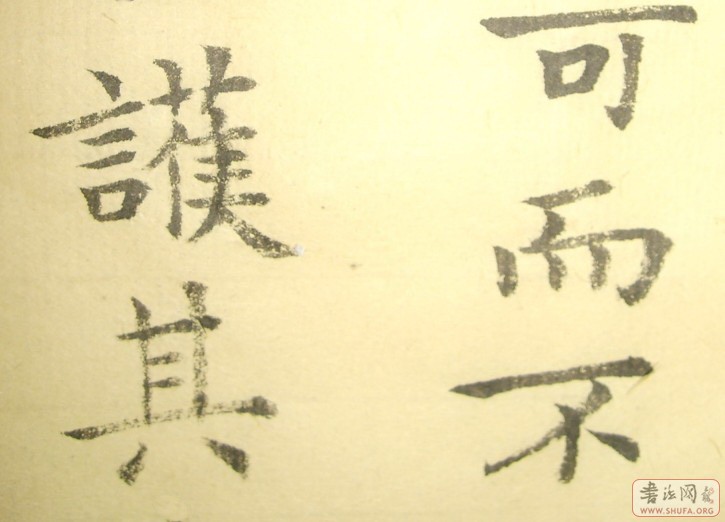 可而不
護其
書法网
WWW.SHUFA.ORG